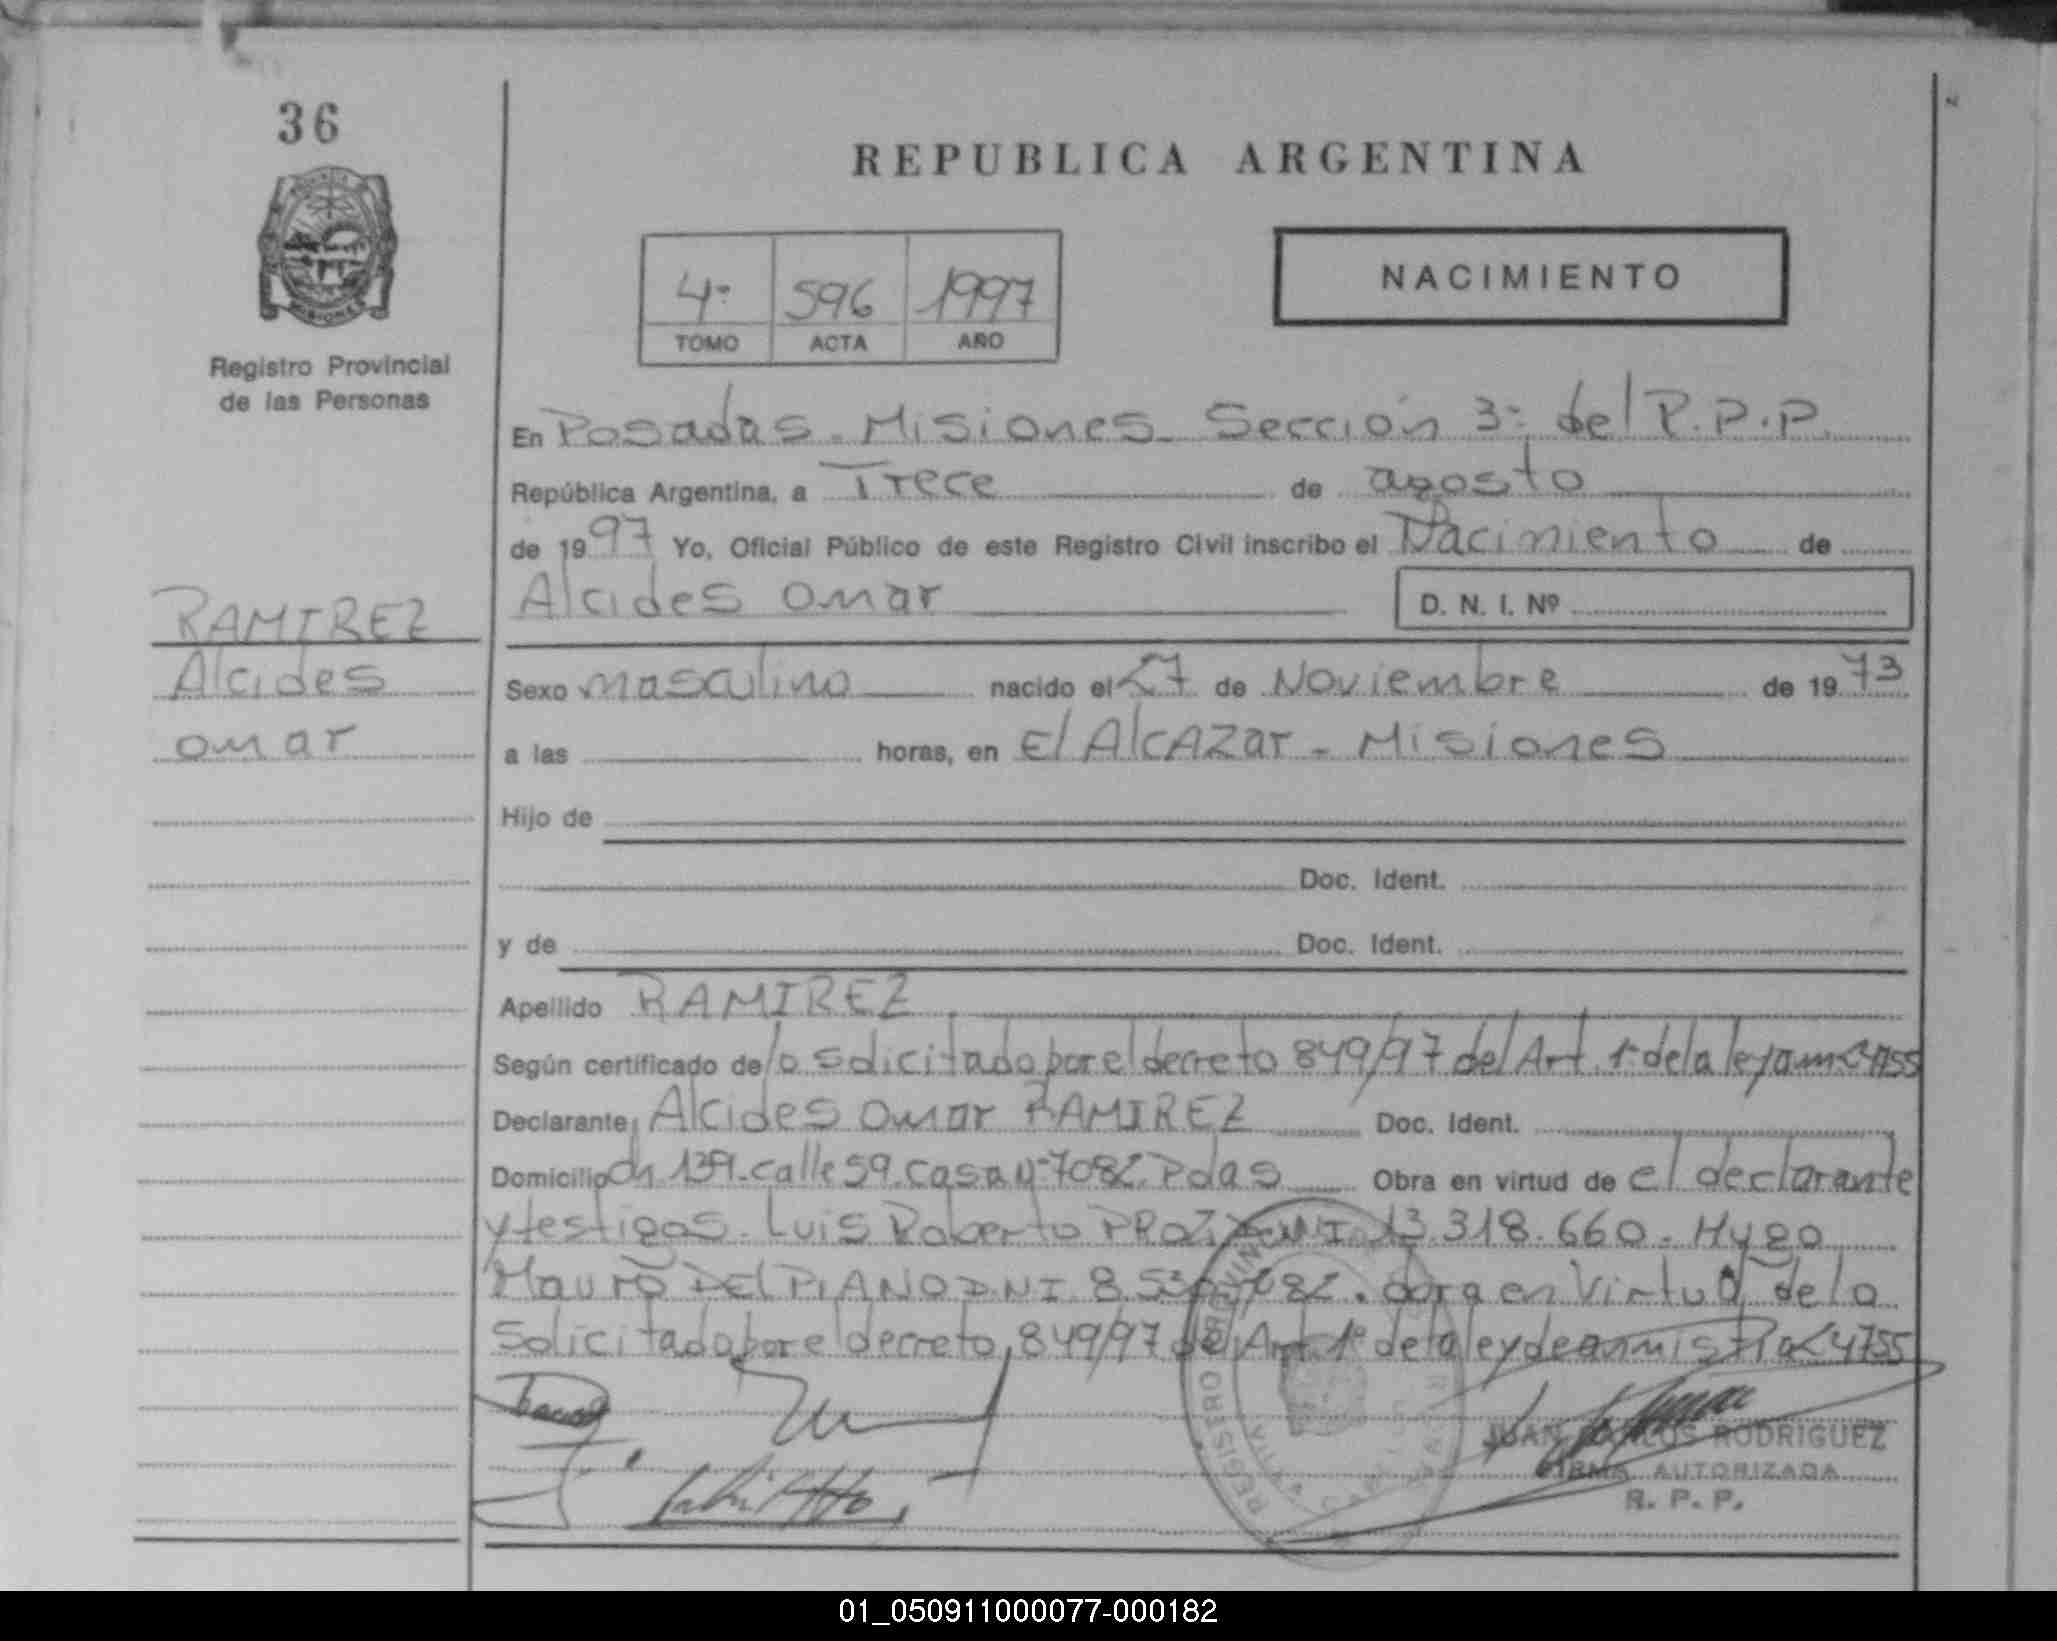 36
REPUBLICA ARGENTINA
NACIMIENTO
4º 596 1997
TOMO ACTA AÑO
Registro Provincial
de las Personas
En Posadas - Misiones - Sección 3ª del R.P.P.
República Argentina, a Trece de agosto
de 1997 Yo, Oficial Público de este Registro Civil inscribo el Nacimiento de
Alcides Omar
D. N. I. Nº
RAMIREZ
Alcides
omar
Sexo masculino nacido el 27 de Noviembre de 1973
a las horas, en El Alcazar - Misiones
Hijo de
Doc. Ident.
y de Doc. Ident.
Apellido RAMIREZ
Según certificado de lo solicitado por el decreto 849/97 del Art. 1º de la ley
Declarante Alcides Omar RAMIREZ Doc. Ident.
Domicilio ch 139 - calle 59 - casa Nº 7082 Pdas Obra en virtud de el declarante
y testigos - Luis Roberto 13.318.660 - Hugo
Mauro DEL PIANO DNI obra en Virtud de lo
Solicitado por el decreto 849/97 del Art. 1º de la ley de amnistia 24755
JUAN CARLOS RODRIGUEZ
FIRMA AUTORIZADA
R. P. P.
01_050911000077-000182